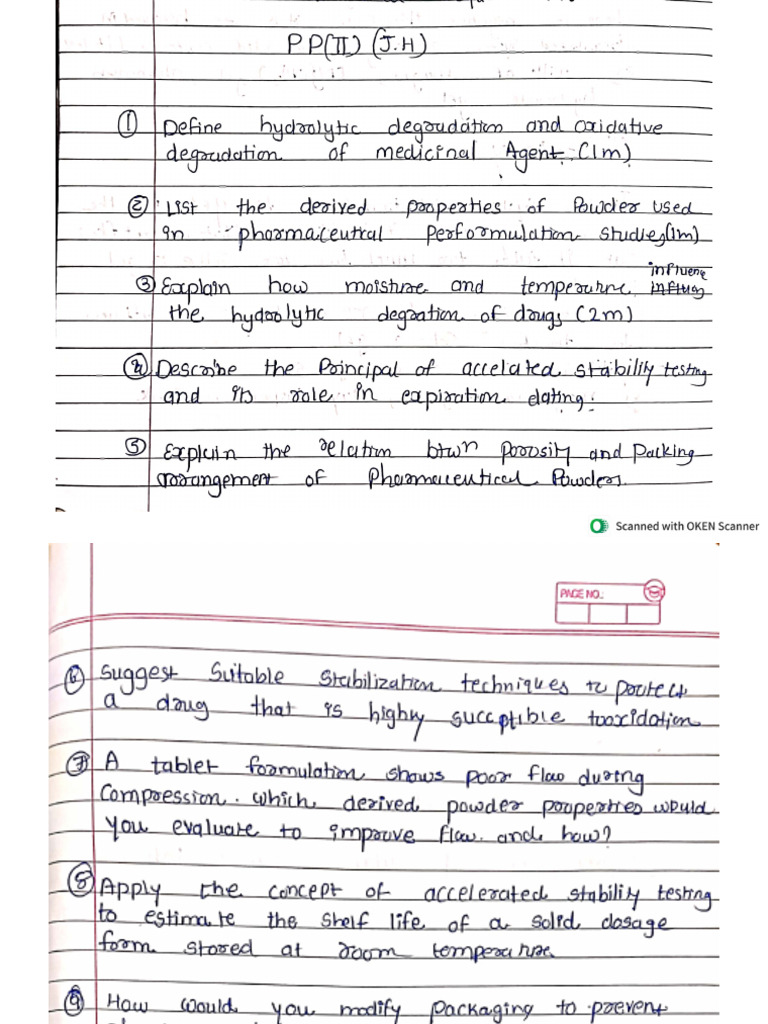 PP(II) (J.H)
① Define hydrolytic degradation and oxidative
degradation of medicinal Agent (1m)
② List the derived properties of Powder used
in pharmaceutical Performulation studies(1m)
influene
③ Explain how moisture and temperature
the hydrolytic degration of drugs (2m)
④ Describe the Principal of accelated stability testing
and its role in expiration dating.
⑤ Explain the relation btwn porosity and Packing
arrangement of Pharmaceutical Powders
Scanned with OKEN Scanner
PAGE NO.:
⑥ Suggest Suitable Stabilization techniques to protect
a drug that is highly succptible tooxidation
⑦ A tablet formulation shows poor flow during
Compression. which derived powder properties would
you evaluate to improve flow and how?
⑧ Apply the concept of accelerated stability testing
to estimate the shelf life of a solid dosage
form stored at room temperature
⑨ How would you modify packaging to prevent